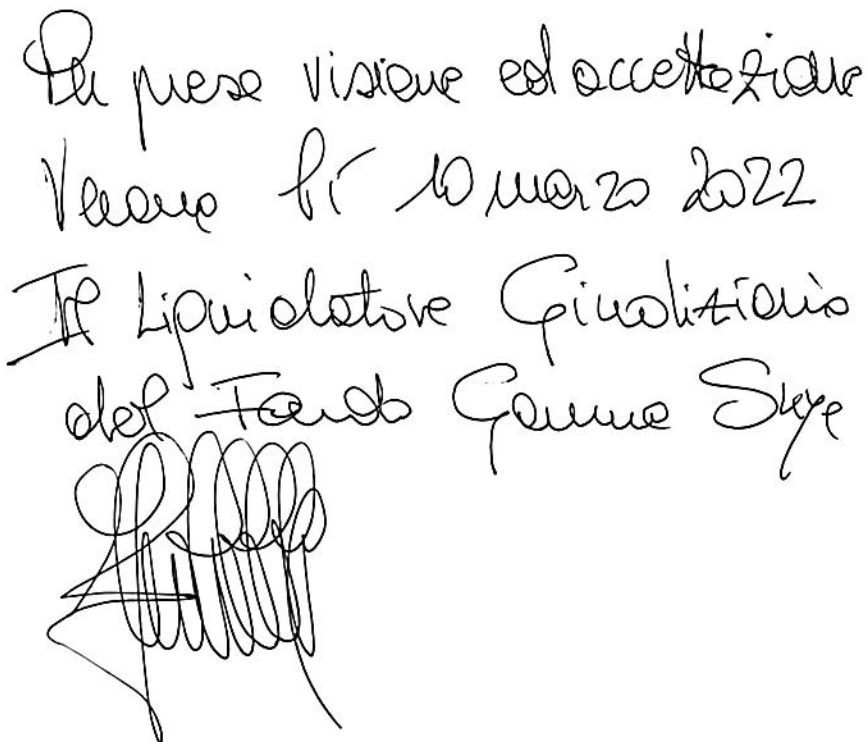 Per presa visione ed accettazione
Verona lì 10 marzo 2022
Il Liquidatore Giudiziario
del Fondo Gamma Skye